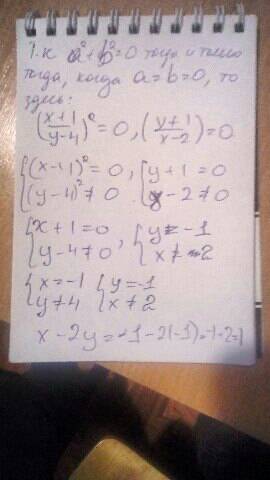 Т.к a²+b²=0 тогда и только
тогда, когда a=b=0, то
здесь:
(x+1/y-4)²=0, (y+1/x-2)=0
{(x+1)²=0, {y+1=0
{(y-4)²≠0. {x-2≠0
{x+1=0, {y=-1
{y-4≠0, {x≠2
{x=-1 {y=-1
{y≠4 {x≠2
x-2y=-1-2(-1)=-1-2=1